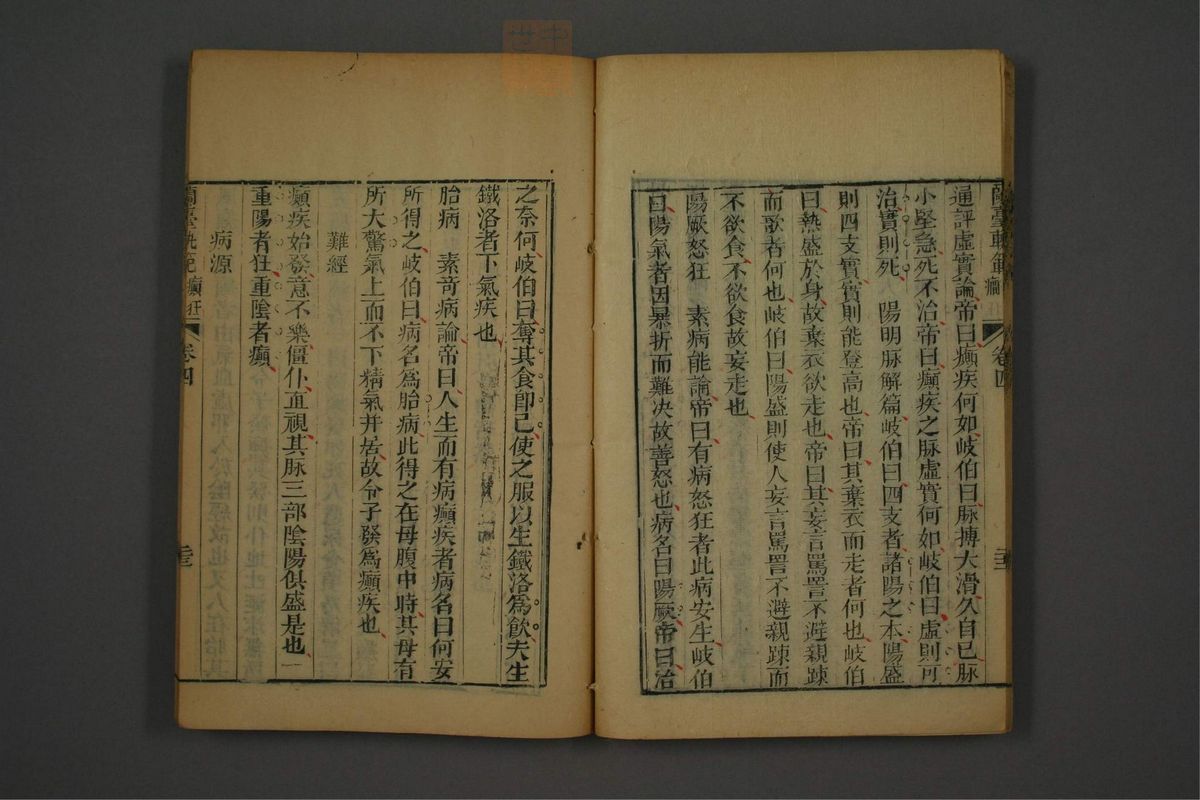 蘭臺軌範 癲狂 卷四
通評虛實論帝曰癲疾何如岐伯曰脉搏大滑久自已脉
小堅急死不治帝曰癲疾之脉虛實何如岐伯曰虛則可
治實則死 陽明脉解篇岐伯曰四支者諸陽之本陽盛
則四支實實則能登高也帝曰其棄衣而走者何也岐伯
曰熱盛於身故棄衣欲走也帝曰其妄言罵詈不避親踈
而歌者何也岐伯曰陽盛則使人妄言罵詈不避親踈而
不欲食不欲食故妄走也
陽厥怒狂 素病能論帝曰有病怒狂者此病安生岐伯
曰陽氣者因暴折而難決故善怒也病名曰陽厥帝曰治
之奈何岐伯曰奪其食即已使之服以生鐵洛爲飲夫生
鐵洛者下氣疾也
胎病 素奇病論帝曰人生而有病癲疾者病名曰何安
所得之岐伯曰病名爲胎病此得之在母腹中時其母有
所大驚氣上而不下精氣并居故令子發爲癲疾也
難經
癲疾始發意不樂僵仆直視其脉三部陰陽俱盛是也
重陽者狂重陰者癲
病源
蘭臺軌範 癲狂 卷四